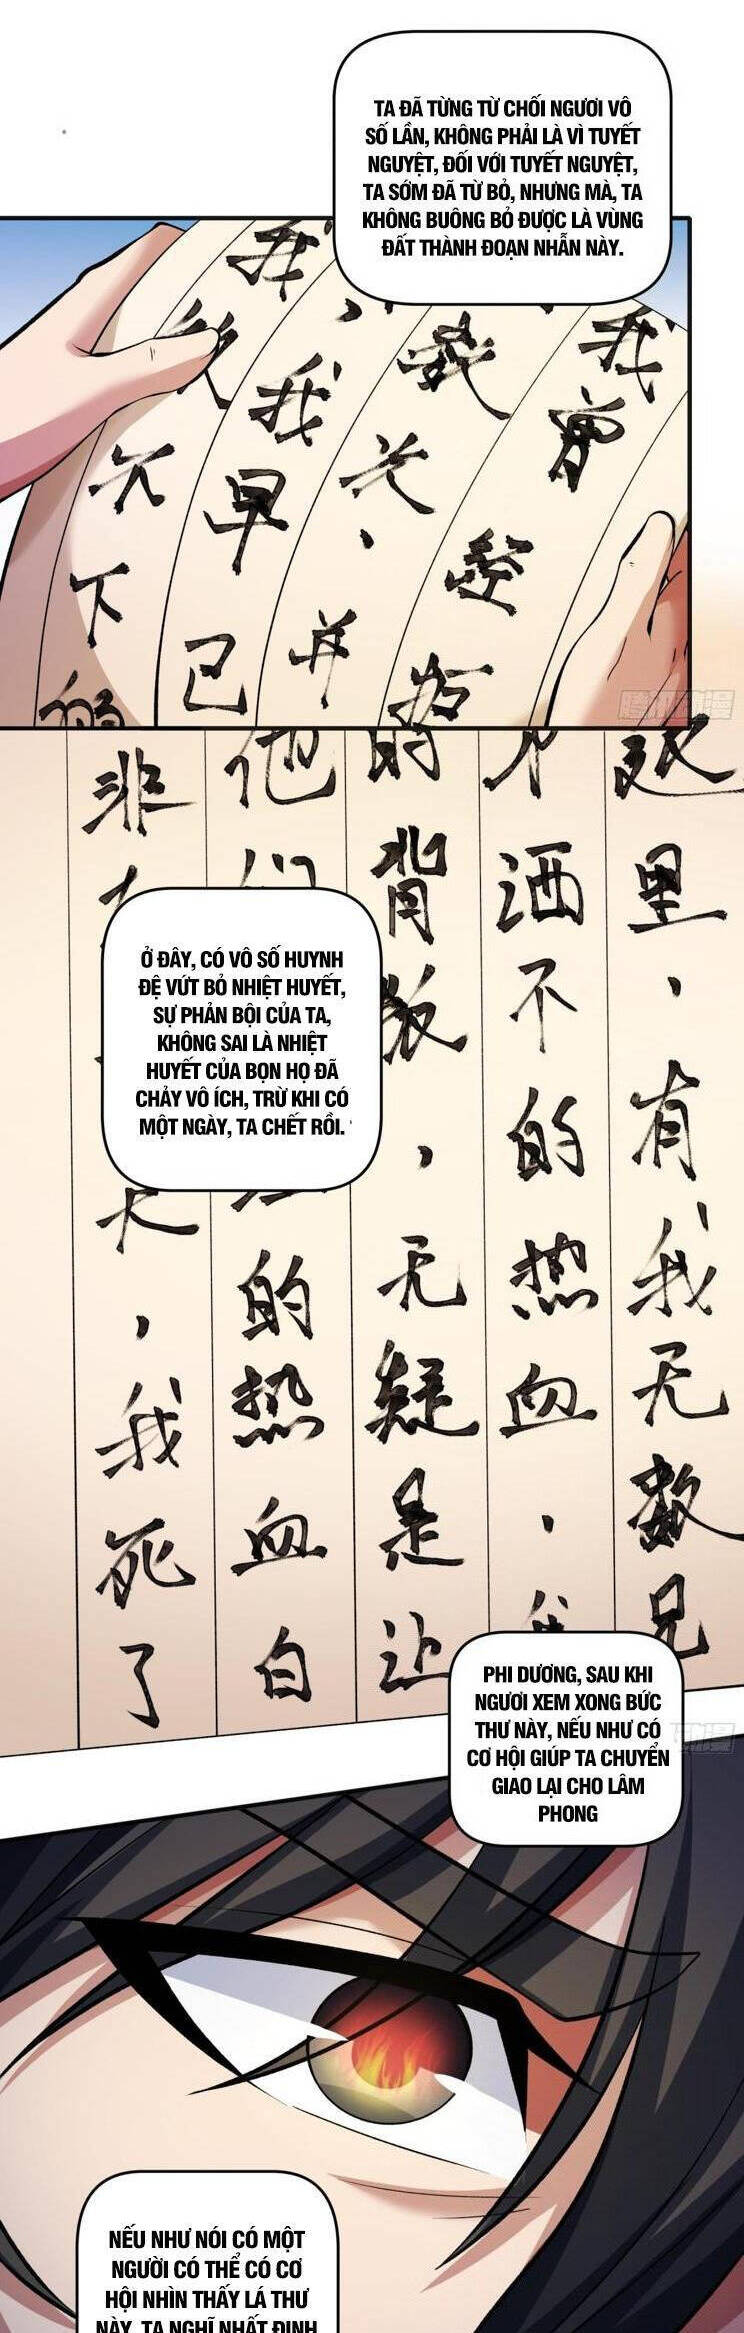 TA ĐÃ TỪNG TỪ CHỐI NGƯƠI VÔ
SỐ LẦN, KHÔNG PHẢI LÀ VÌ TUYẾT
NGUYỆT, ĐỐI VỚI TUYẾT NGUYỆT,
TA SỚM ĐÃ TỪ BỎ, NHƯNG MÀ, TA
KHÔNG BUÔNG BỎ ĐƯỢC LÀ VÙNG
ĐẤT THÀNH ĐOẠN NHẪN NÀY.
我曾经
我早已
不下的
里，有我无数兄
洒不的热血，我
的背叛，无疑是让
他们
的热血白
非
天，我死了
Ở ĐÂY, CÓ VÔ SỐ HUYNH
ĐỆ VỨT BỎ NHIỆT HUYẾT,
SỰ PHẢN BỘI CỦA TA,
KHÔNG SAI LÀ NHIỆT
HUYẾT CỦA BỌN HỌ ĐÃ
CHẢY VÔ ÍCH, TRỪ KHI CÓ
MỘT NGÀY, TA CHẾT RỒI.
PHI DƯƠNG, SAU KHI
NGƯƠI XEM XONG BỨC
THƯ NÀY, NẾU NHƯ CÓ
CƠ HỘI GIÚP TA CHUYỂN
GIAO LẠI CHO LÂM
PHONG
NẾU NHƯ NÓI CÓ MỘT
NGƯỜI CÓ THỂ CÓ CƠ
HỘI NHÌN THẤY LÁ THƯ
NÀY, TA NGHĨ NHẤT ĐỊNH